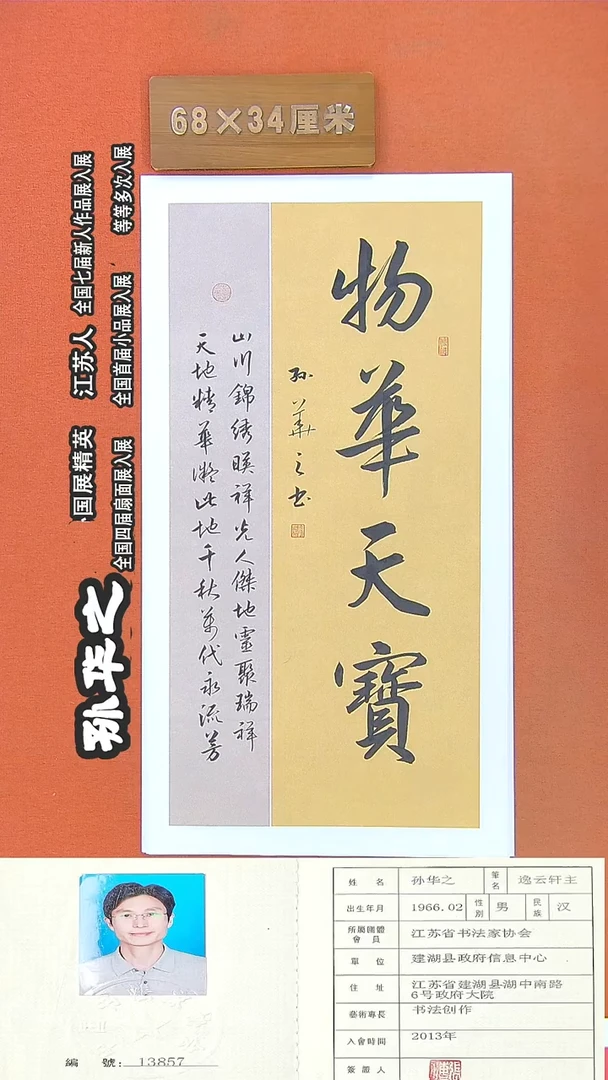 68×34厘米
物華天寶
孙華之书
山川錦绣暎祥光人傑地靈聚瑞祥
天地精華凝此地千秋萬代永流芳
孙华之
国展精英 江苏人 全国七届新人作品展入展
全国四届扇面展入展 全国首届小品展入展 等等多次入展
姓名 孙华之 筆名 逸云轩主
出生年月 1966.02 性別 男 民族 汉
所屬團體會員 江苏省书法家协会
單位 建湖县政府信息中心
住址 江苏省建湖县湖中南路
6号政府大院
藝術專長 书法创作
入會時間 2013年
簽證人
編號：13857